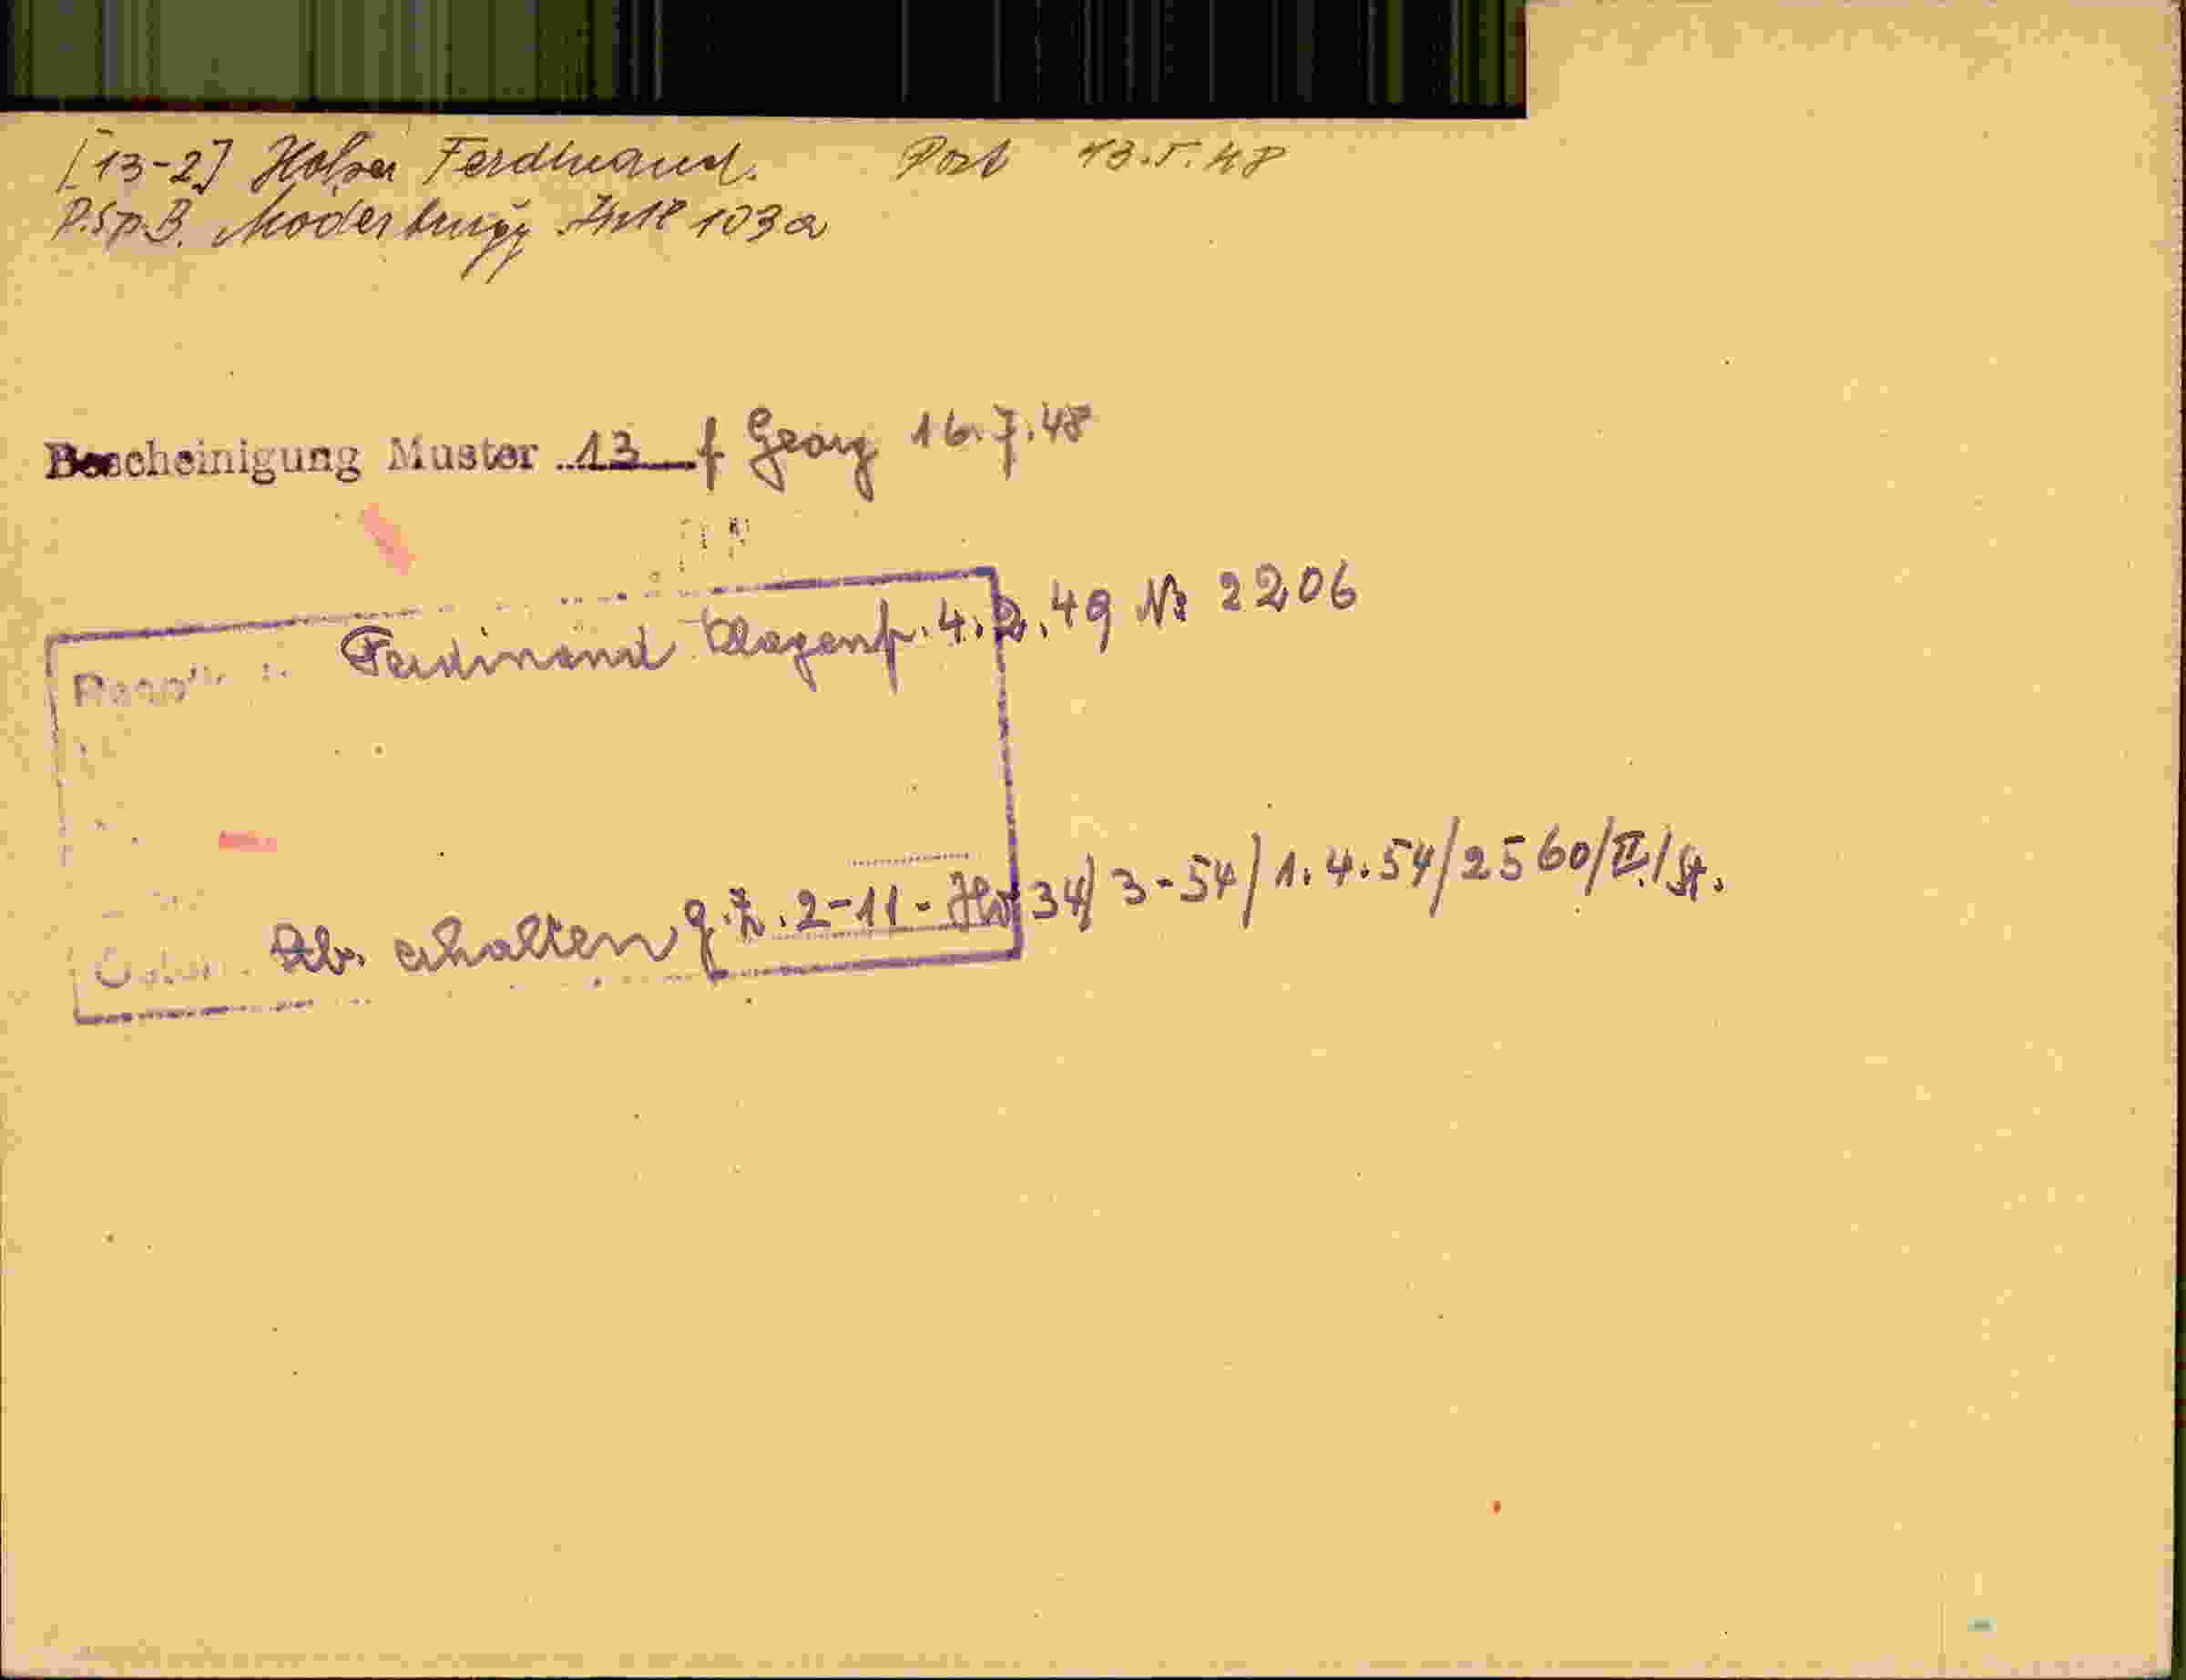 [13-2] Holzer Ferdinand. Post 13.5.48
P.Sp.B. Moderbrugg 103a
Bescheinigung Muster 13 f Georg 16.7.48
Ferdinand Klagenf. 4.2.49 № 2206
Ab. erhalten g.Z. 2-11-Ho 34/3-54/1.4.54/2560/II./St.